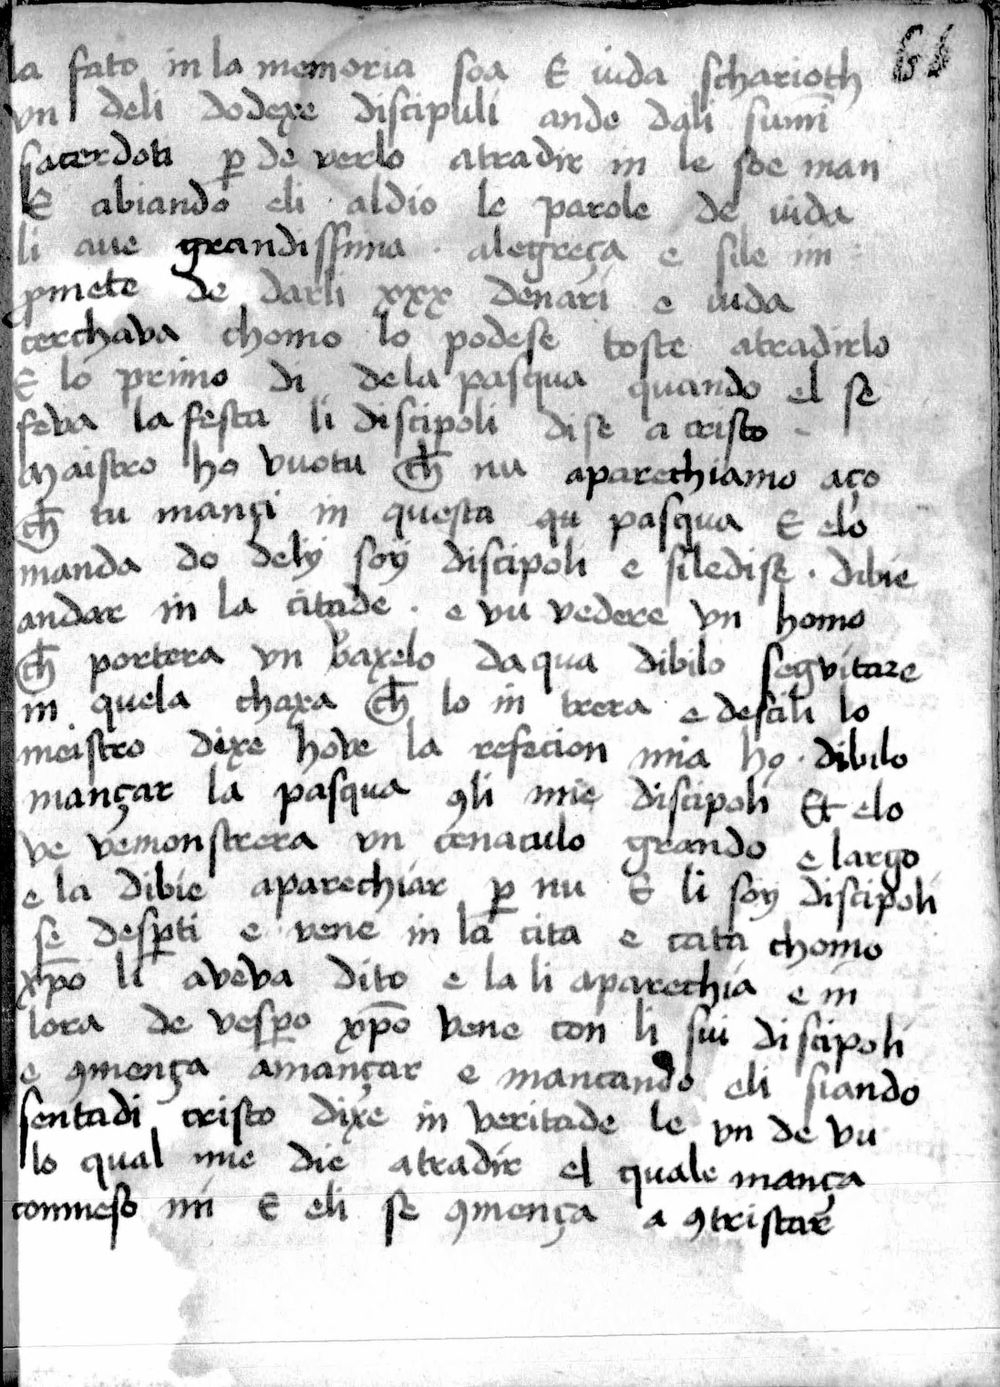 61
la fato in la memoria soa E iuda scharioth
vn deli dodexe discipuli ande dali sum̅i
sacerdoti ꝑ de verlo atradir in le soe man
E abiando eli aldio le parole de iuda
li ave grandissima alegreça e sile im
ꝓmete de darli xxx denari e iuda
cerchava chomo lo podese toste atradirlo
E lo primo di dela pasqua quando el se
feva la festa li discipoli dise a cristo
Maistro ho vuotu ch̅ nu aparechiamo aço
ch̅ tu mançi in questa qu pasqua E elo
manda do dely soy discipoli e siledise · dibie
andar in la citade · e vu vedere vn homo
ch̅ portera vn vaxelo daqua dibilo seguitare
in quela chaxa ch̅ lo in trera e desili lo
meistro dixe hove la refecion mia ho · dibilo
mançar la pasqua ꝯli mie discipoli Et elo
ve vemonstrera vn cenaculo grando e largo
e la dibie aparechiar ꝑ nu E li soy discipoli
se desꝑti e vene in la cita e cata chomo
xp̅o li aveva dito e la li aparechia e in
lora de vesꝑo xp̅o vene con li sui discipoli
e ꝯmença amançar e mancando eli siando
sentadi cristo dixe in veritade le vn de vu
lo qual me die atradir el quale mança
comneso mi E eli se ꝯmença a ꝯtristar